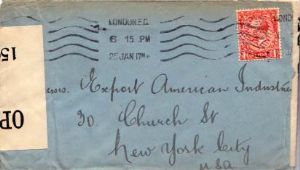 LONDON.E.C.
6 15 PM
25 JAN 17
Export American Industries
30. Church St
New York City
USA
OP